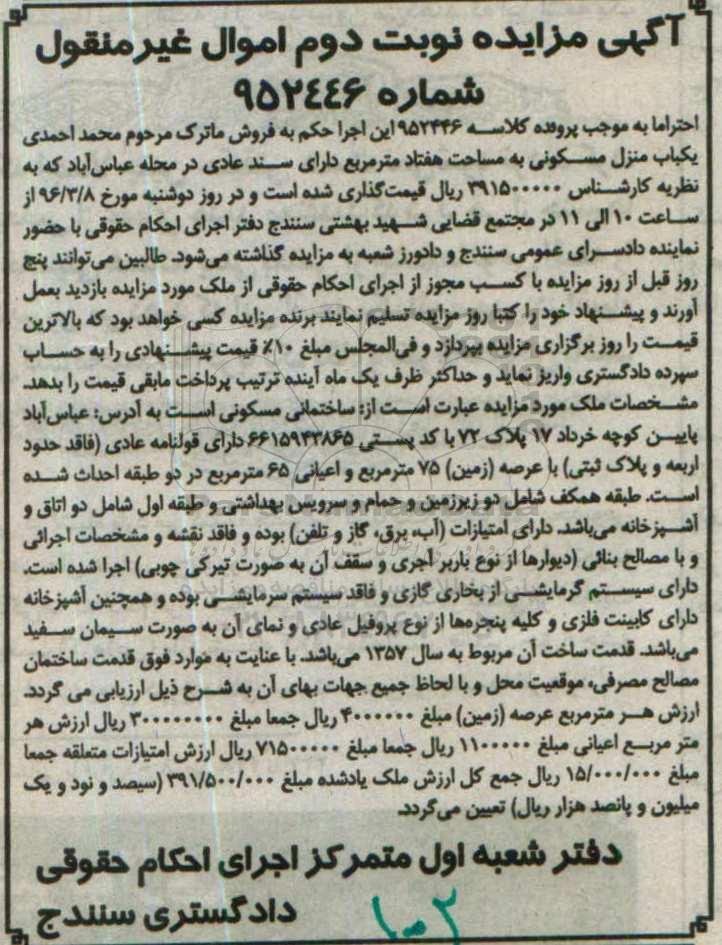 آگهی مزایده نوبت دوم اموال غیرمنقول
شماره ۹۵۲٤٤۶
احتراما به موجب پرونده کلاسه ۹۵۲۴۴۶ این اجرا حکم به فروش ماترک مرحوم محمد احمدی
یکباب منزل مسکونی به مساحت هفتاد مترمربع دارای سند عادی در محله عباس‌آباد که به
نظریه کارشناس ۳۹۱۵۰۰۰۰۰ ریال قیمت‌گذاری شده است و در روز دوشنبه مورخ ۹۶/۳/۸ از
ساعت ۱۰ الی ۱۱ در مجتمع قضایی شهید بهشتی سنندج دفتر اجرای احکام حقوقی با حضور
نماینده دادسرای عمومی سنندج و دادورز شعبه به مزایده گذاشته می‌شود. طالبین می‌توانند پنج
روز قبل از روز مزایده با کسب مجوز از اجرای احکام حقوقی از ملک مورد مزایده بازدید بعمل
آورند و پیشنهاد خود را کتبا روز مزایده تسلیم نمایند برنده مزایده کسی خواهد بود که بالاترین
قیمت را روز برگزاری مزایده بپردازد و فی‌المجلس مبلغ ۱۰٪ قیمت پیشنهادی را به حساب
سپرده دادگستری واریز نماید و حداکثر ظرف یک ماه آینده ترتیب پرداخت مابقی قیمت را بدهد.
مشخصات ملک مورد مزایده عبارت است از: ساختمانی مسکونی است به آدرس: عباس‌آباد
پایین کوچه خرداد ۱۷ پلاک ۷۲ با کد پستی ۶۶۱۵۹۴۳۸۶۵ دارای قولنامه عادی (فاقد حدود
اربعه و پلاک ثبتی) با عرصه (زمین) ۷۵ مترمربع و اعیانی ۶۵ مترمربع در دو طبقه احداث شده
است. طبقه همکف شامل دو زیرزمین و حمام و سرویس بهداشتی و طبقه اول شامل دو اتاق و
آشپزخانه می‌باشد. دارای امتیازات (آب، برق، گاز و تلفن) بوده و فاقد نقشه و مشخصات اجرائی
و با مصالح بنائی (دیوارها از نوع باربر آجری و سقف آن به صورت تیرکی چوبی) اجرا شده است.
دارای سیستم گرمایشی از بخاری گازی و فاقد سیستم سرمایشی بوده و همچنین آشپزخانه
دارای کابینت فلزی و کلیه پنجره‌ها از نوع پروفیل عادی و نمای آن به صورت سیمان سفید
می‌باشد. قدمت ساخت آن مربوط به سال ۱۳۵۷ می‌باشد. با عنایت به موارد فوق قدمت ساختمان
مصالح مصرفی، موقعیت محل و با لحاظ جمیع جهات بهای آن به شرح ذیل ارزیابی می گردد.
ارزش هر مترمربع عرصه (زمین) مبلغ ۴۰۰۰۰۰۰ ریال جمعا مبلغ ۳۰۰۰۰۰۰۰۰ ریال ارزش هر
متر مربع اعیانی مبلغ ۱۱۰۰۰۰۰ ریال جمعا مبلغ ۷۱۵۰۰۰۰۰ ریال ارزش امتیازات متعلقه جمعا
مبلغ ۱۵/۰۰۰/۰۰۰ ریال جمع کل ارزش ملک یادشده مبلغ ۳۹۱/۵۰۰/۰۰۰ (سیصد و نود و یک
میلیون و پانصد هزار ریال) تعیین می‌گردد.
دفتر شعبه اول متمرکز اجرای احکام حقوقی
دادگستری سنندج
۱۰۰۲